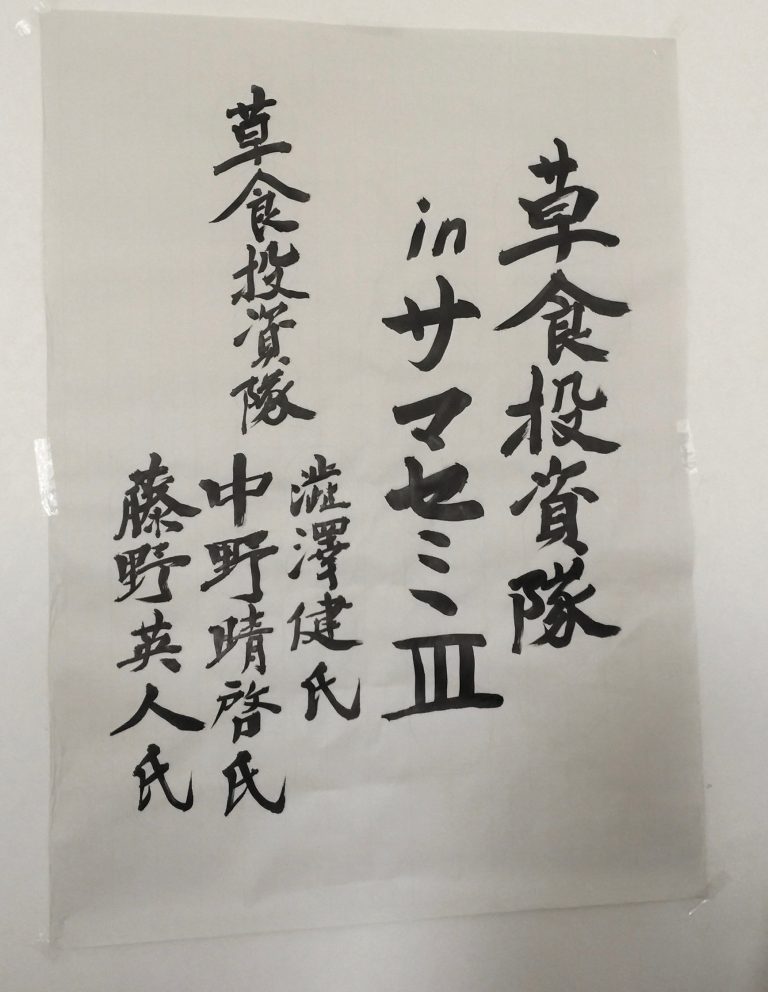 草食投資隊
inサマセミⅢ
草食投資隊
澁澤健氏
中野晴啓氏
藤野英人氏